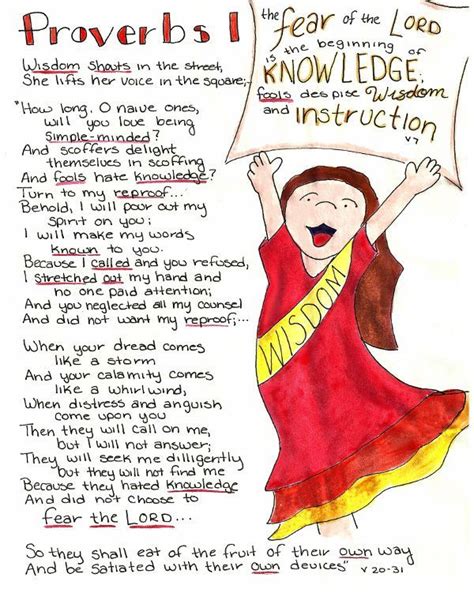 Proverbs 1
Wisdom shouts in the street,
She lifts her voice in the square;
"How long, O naive ones,
will you love being
simple-minded?
And scoffers delight
themselves in scoffing
And fools hate knowledge?
Turn to my reproof...
Behold, I will pour out my
spirit on you;
I will make my words
known to you.
Because I called and you refused,
I stretched out my hand and
no one paid attention;
And you neglected all my counsel
And did not want my reproof;...
When your dread comes
like a storm
And your calamity comes
like a whirlwind,
When distress and anguish
come upon you
Then they will call on me,
but I will not answer;
They will seek me dilligently
but they will not find me
Because they hated knowledge
And did not choose to
fear the LORD...
So they shall eat of the fruit of their own way
And be satiated with their own devices" v 20-31
the fear of the LORD
is the beginning of
KNOWLEDGE;
fools despise Wisdom
and instruction
v7
WISDOM